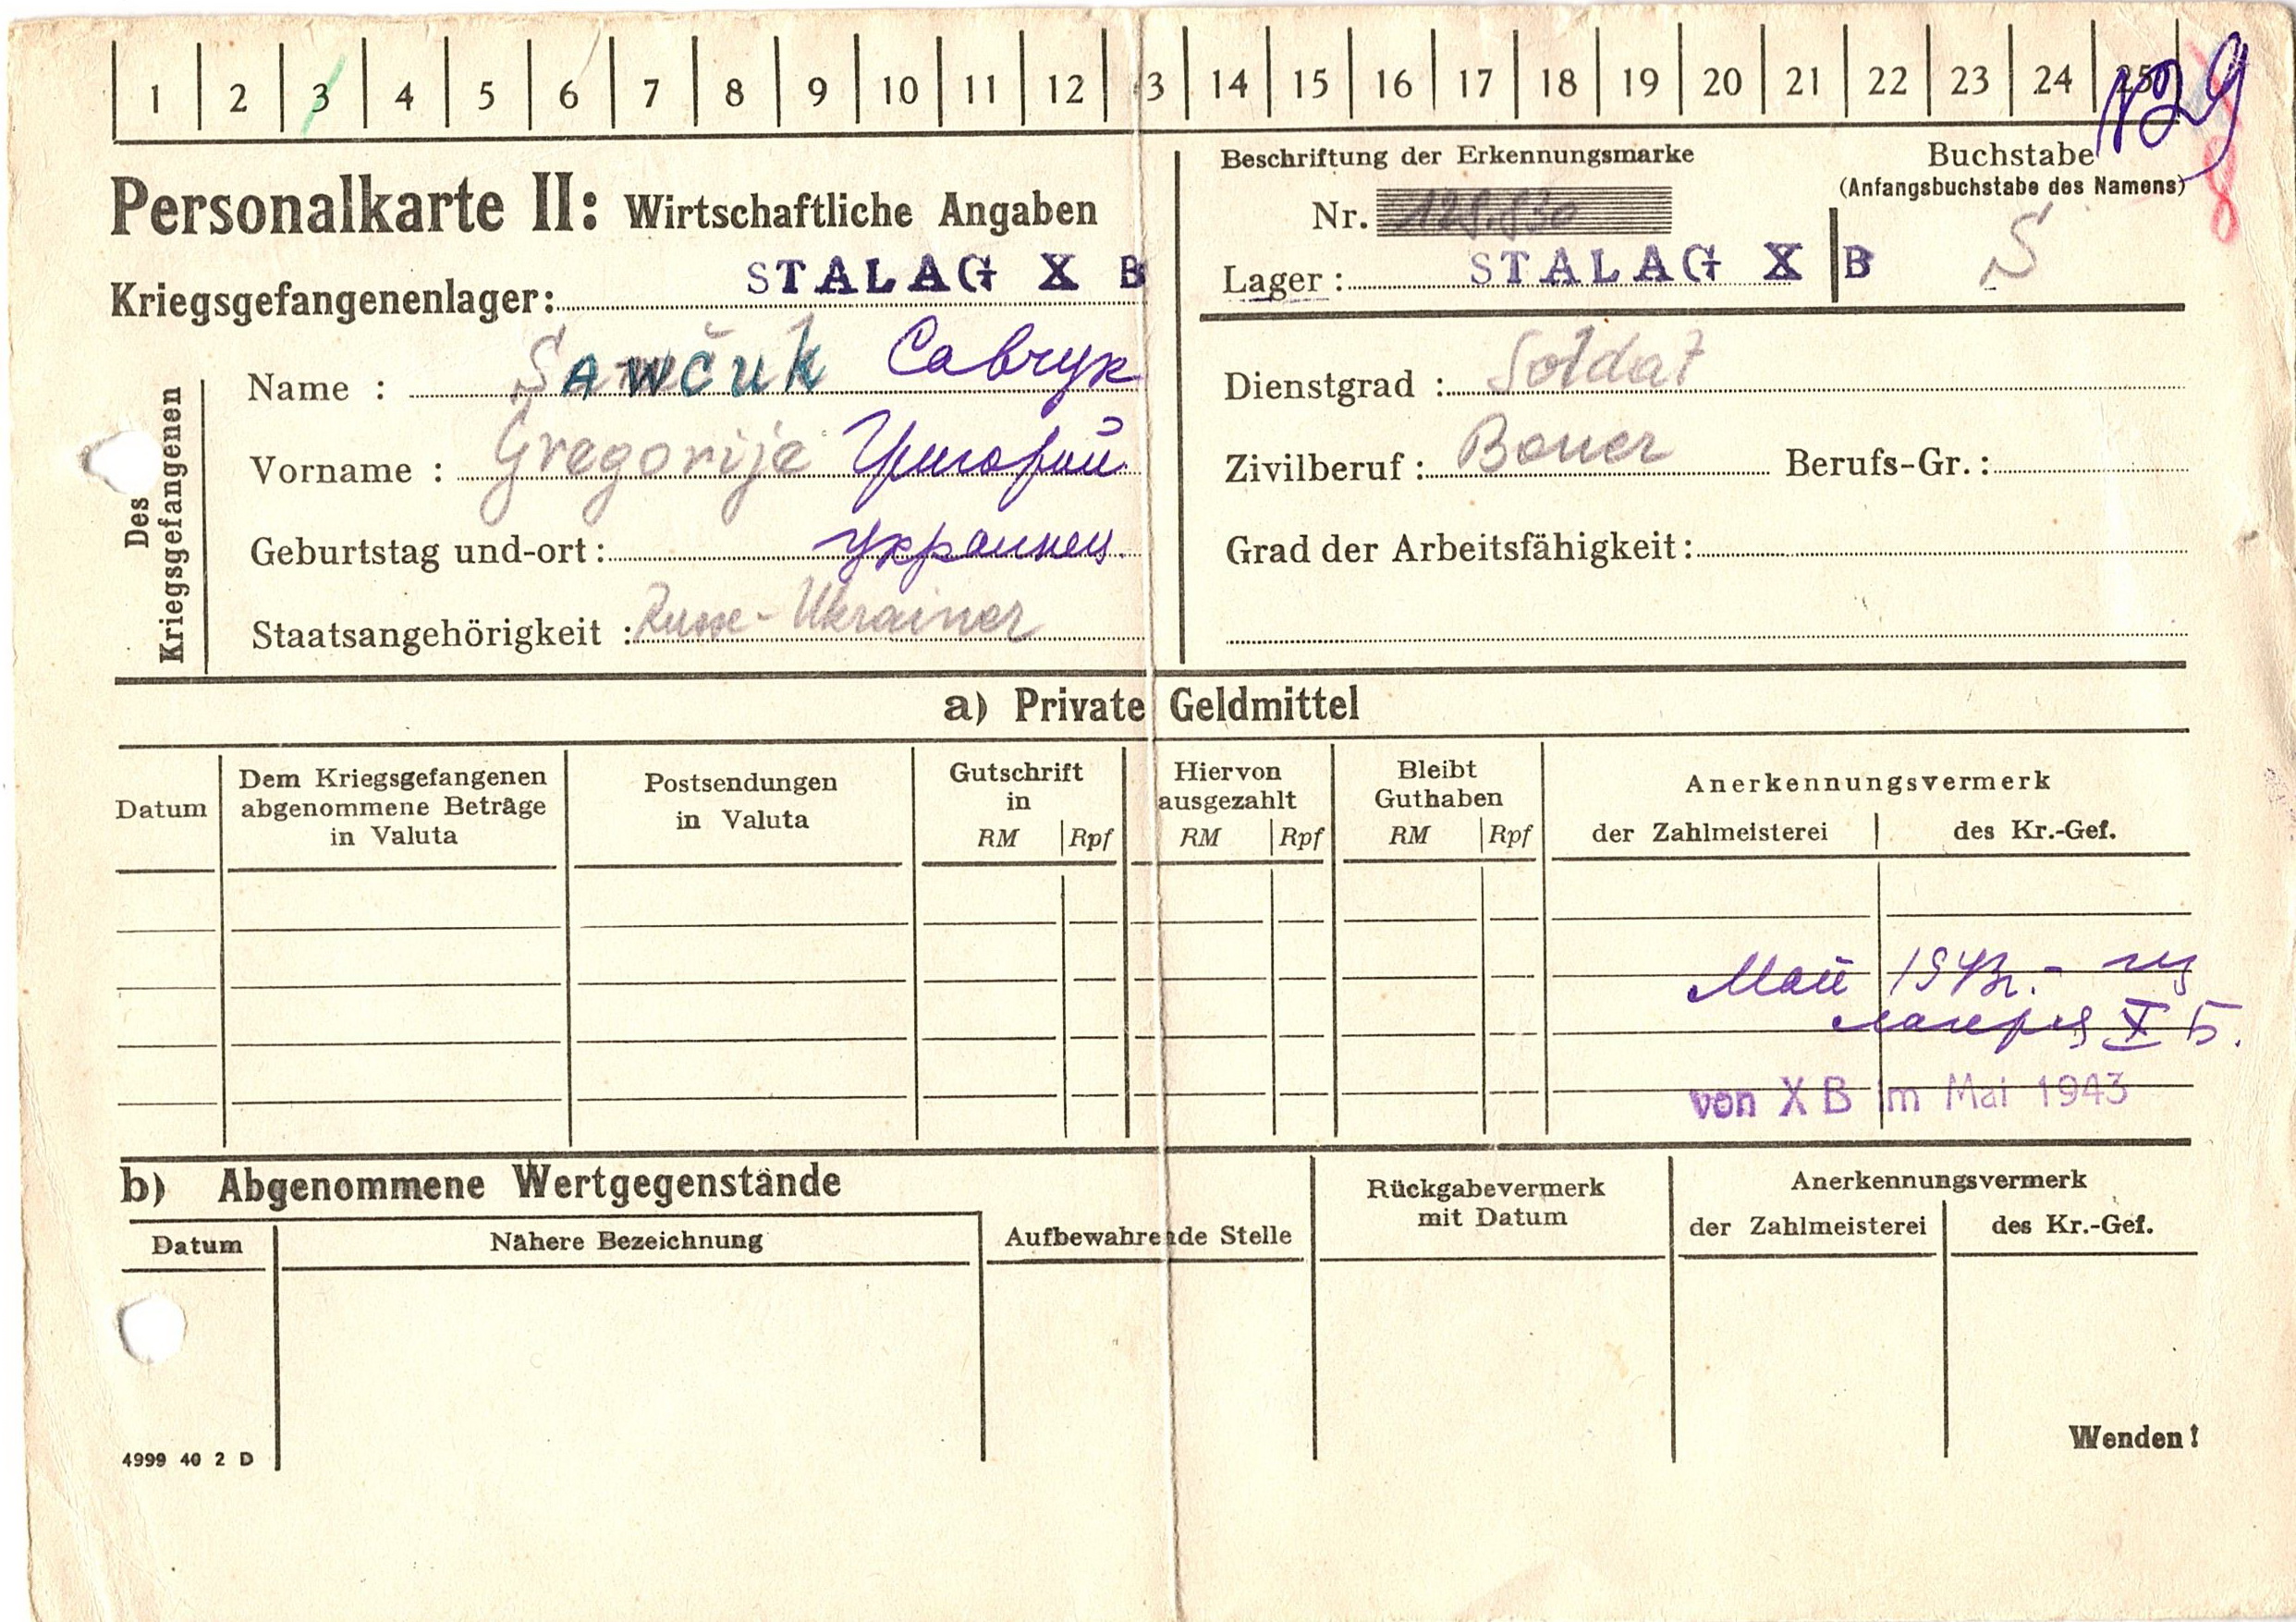 1 2 3 4 5 6 7 8 9 10 11 12 13 14 15 16 17 18 19 20 21 22 23 24 25
Personalkarte II: Wirtschaftliche Angaben
Kriegsgefangenenlager: STALAG X B
Beschriftung der Erkennungsmarke
Nr.
Lager: STALAG X B
Buchstabe
(Anfangsbuchstabe des Namens)
S
Des Kriegsgefangenen
Name : Sawčuk Савчук
Vorname : Gregorije Григорий
Geburtstag und-ort: украинец.
Staatsangehörigkeit : Russe-Ukrainer
Dienstgrad : Soldat
Zivilberuf : Bauer Berufs-Gr.:
Grad der Arbeitsfähigkeit:
a) Private Geldmittel
Datum
Dem Kriegsgefangenen
abgenommene Beträge
in Valuta
Postsendungen
in Valuta
Gutschrift
in
RM Rpf
Hiervon
ausgezahlt
RM Rpf
Bleibt
Guthaben
RM Rpf
Anerkennungsvermerk
der Zahlmeisterei des Kr.-Gef.
Май 1943г. - из
лагеря X Б.
von X B im Mai 1943
b) Abgenommene Wertgegenstände
Datum
Nähere Bezeichnung
Aufbewahrende Stelle
Rückgabevermerk
mit Datum
Anerkennungsvermerk
der Zahlmeisterei des Kr.-Gef.
Wenden!
4999 40 2 D